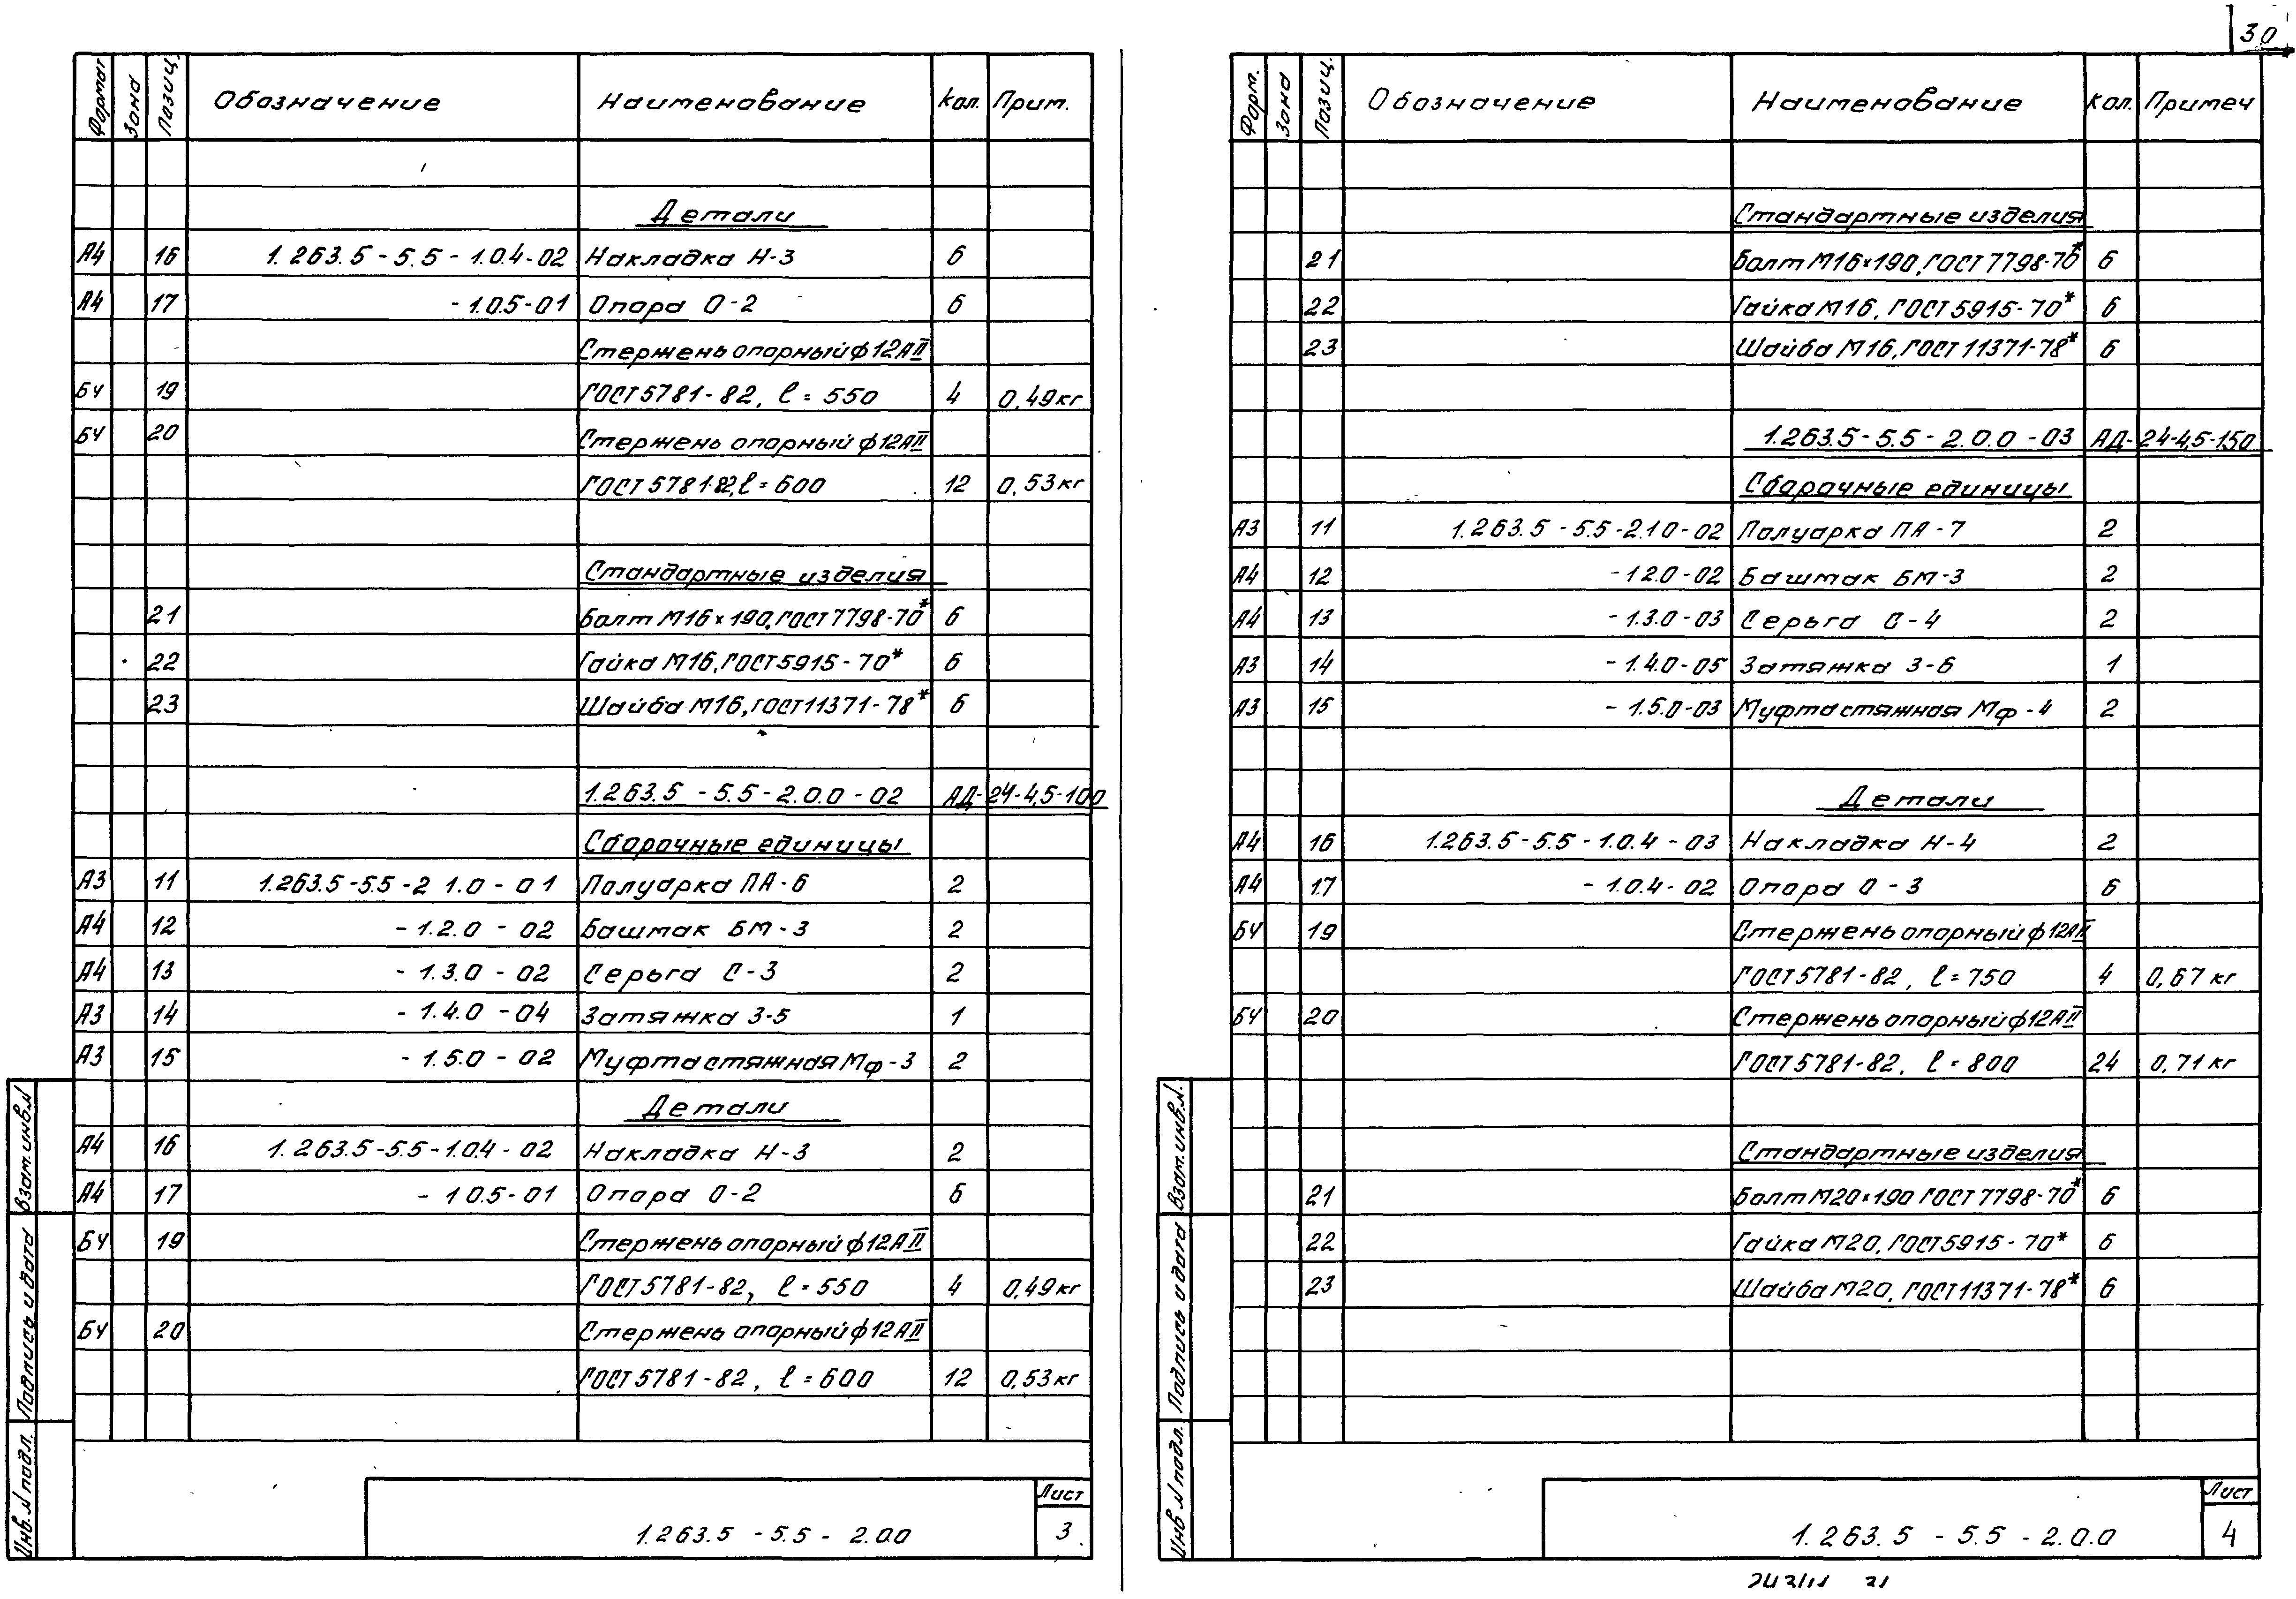 30
Формат Зона Позиц. Обозначение Наименование Кол. Прим.
Детали
А4 16 1.263.5-5.5-1.0.4-02 Накладка Н-3 6
А4 17 -1.0.5-01 Опора О-2 6
Стержень опорный ф12АII
БЧ 19 ГОСТ 5781-82, ℓ=550 4 0,49кг
БЧ 20 Стержень опорный ф12АII
ГОСТ 5781-82, ℓ=600 12 0,53кг
Стандартные изделия
21 Болт М16×190, ГОСТ 7798-70* 6
22 Гайка М16, ГОСТ 5915-70* 6
23 Шайба М16, ГОСТ 11371-78* 6
1.263.5-5.5-2.0.0-02 АД-24-4,5-100
Сборочные единицы
А3 11 1.263.5-5.5-2 1.0-01 Полуарка ПА-6 2
А4 12 -1.2.0-02 Башмак БМ-3 2
А4 13 -1.3.0-02 Серьга С-3 2
А3 14 -1.4.0-04 Затяжка З-5 1
А3 15 -1.5.0-02 Муфта стяжная Мф-3 2
Детали
А4 16 1.263.5-5.5-1.0.4-02 Накладка Н-3 2
А4 17 -1 0.5-01 Опора О-2 6
БЧ 19 Стержень опорный ф12АII
ГОСТ 5781-82, ℓ=550 4 0,49кг
БЧ 20 Стержень опорный ф12АII
ГОСТ 5781-82, ℓ=600 12 0,53кг
Инв.N подл. Подпись и дата Взам.инв.N
1.263.5-5.5-2.0.0
Лист
3
Форм. Зона Позиц. Обозначение Наименование Кол. Примеч
Стандартные изделия
21 Болт М16×190, ГОСТ 7798-70* 6
22 Гайка М16, ГОСТ 5915-70* 6
23 Шайба М16, ГОСТ 11371-78* 6
1.263.5-5.5-2.0.0-03 АД-24-4,5-150
Сборочные единицы
А3 11 1.263.5-5.5-2.1.0-02 Полуарка ПА-7 2
А4 12 -1.2.0-02 Башмак БМ-3 2
А4 13 -1.3.0-03 Серьга С-4 2
А3 14 -1.4.0-05 Затяжка З-6 1
А3 15 -1.5.0-03 Муфта стяжная Мф-4 2
Детали
А4 16 1.263.5-5.5-1.0.4-03 Накладка Н-4 2
А4 17 -1.0.4-02 Опора О-3 6
БЧ 19 Стержень опорный ф12АII
ГОСТ 5781-82, ℓ=750 4 0,67кг
БЧ 20 Стержень опорный ф12АII
ГОСТ 5781-82, ℓ=800 24 0,71кг
Стандартные изделия
21 Болт М20×190 ГОСТ 7798-70* 6
22 Гайка М20, ГОСТ 5915-70* 6
23 Шайба М20, ГОСТ 11371-78* 6
Инв N подл. Подпись и дата Взам.инв.N.
1.263.5-5.5-2.0.0
Лист
4